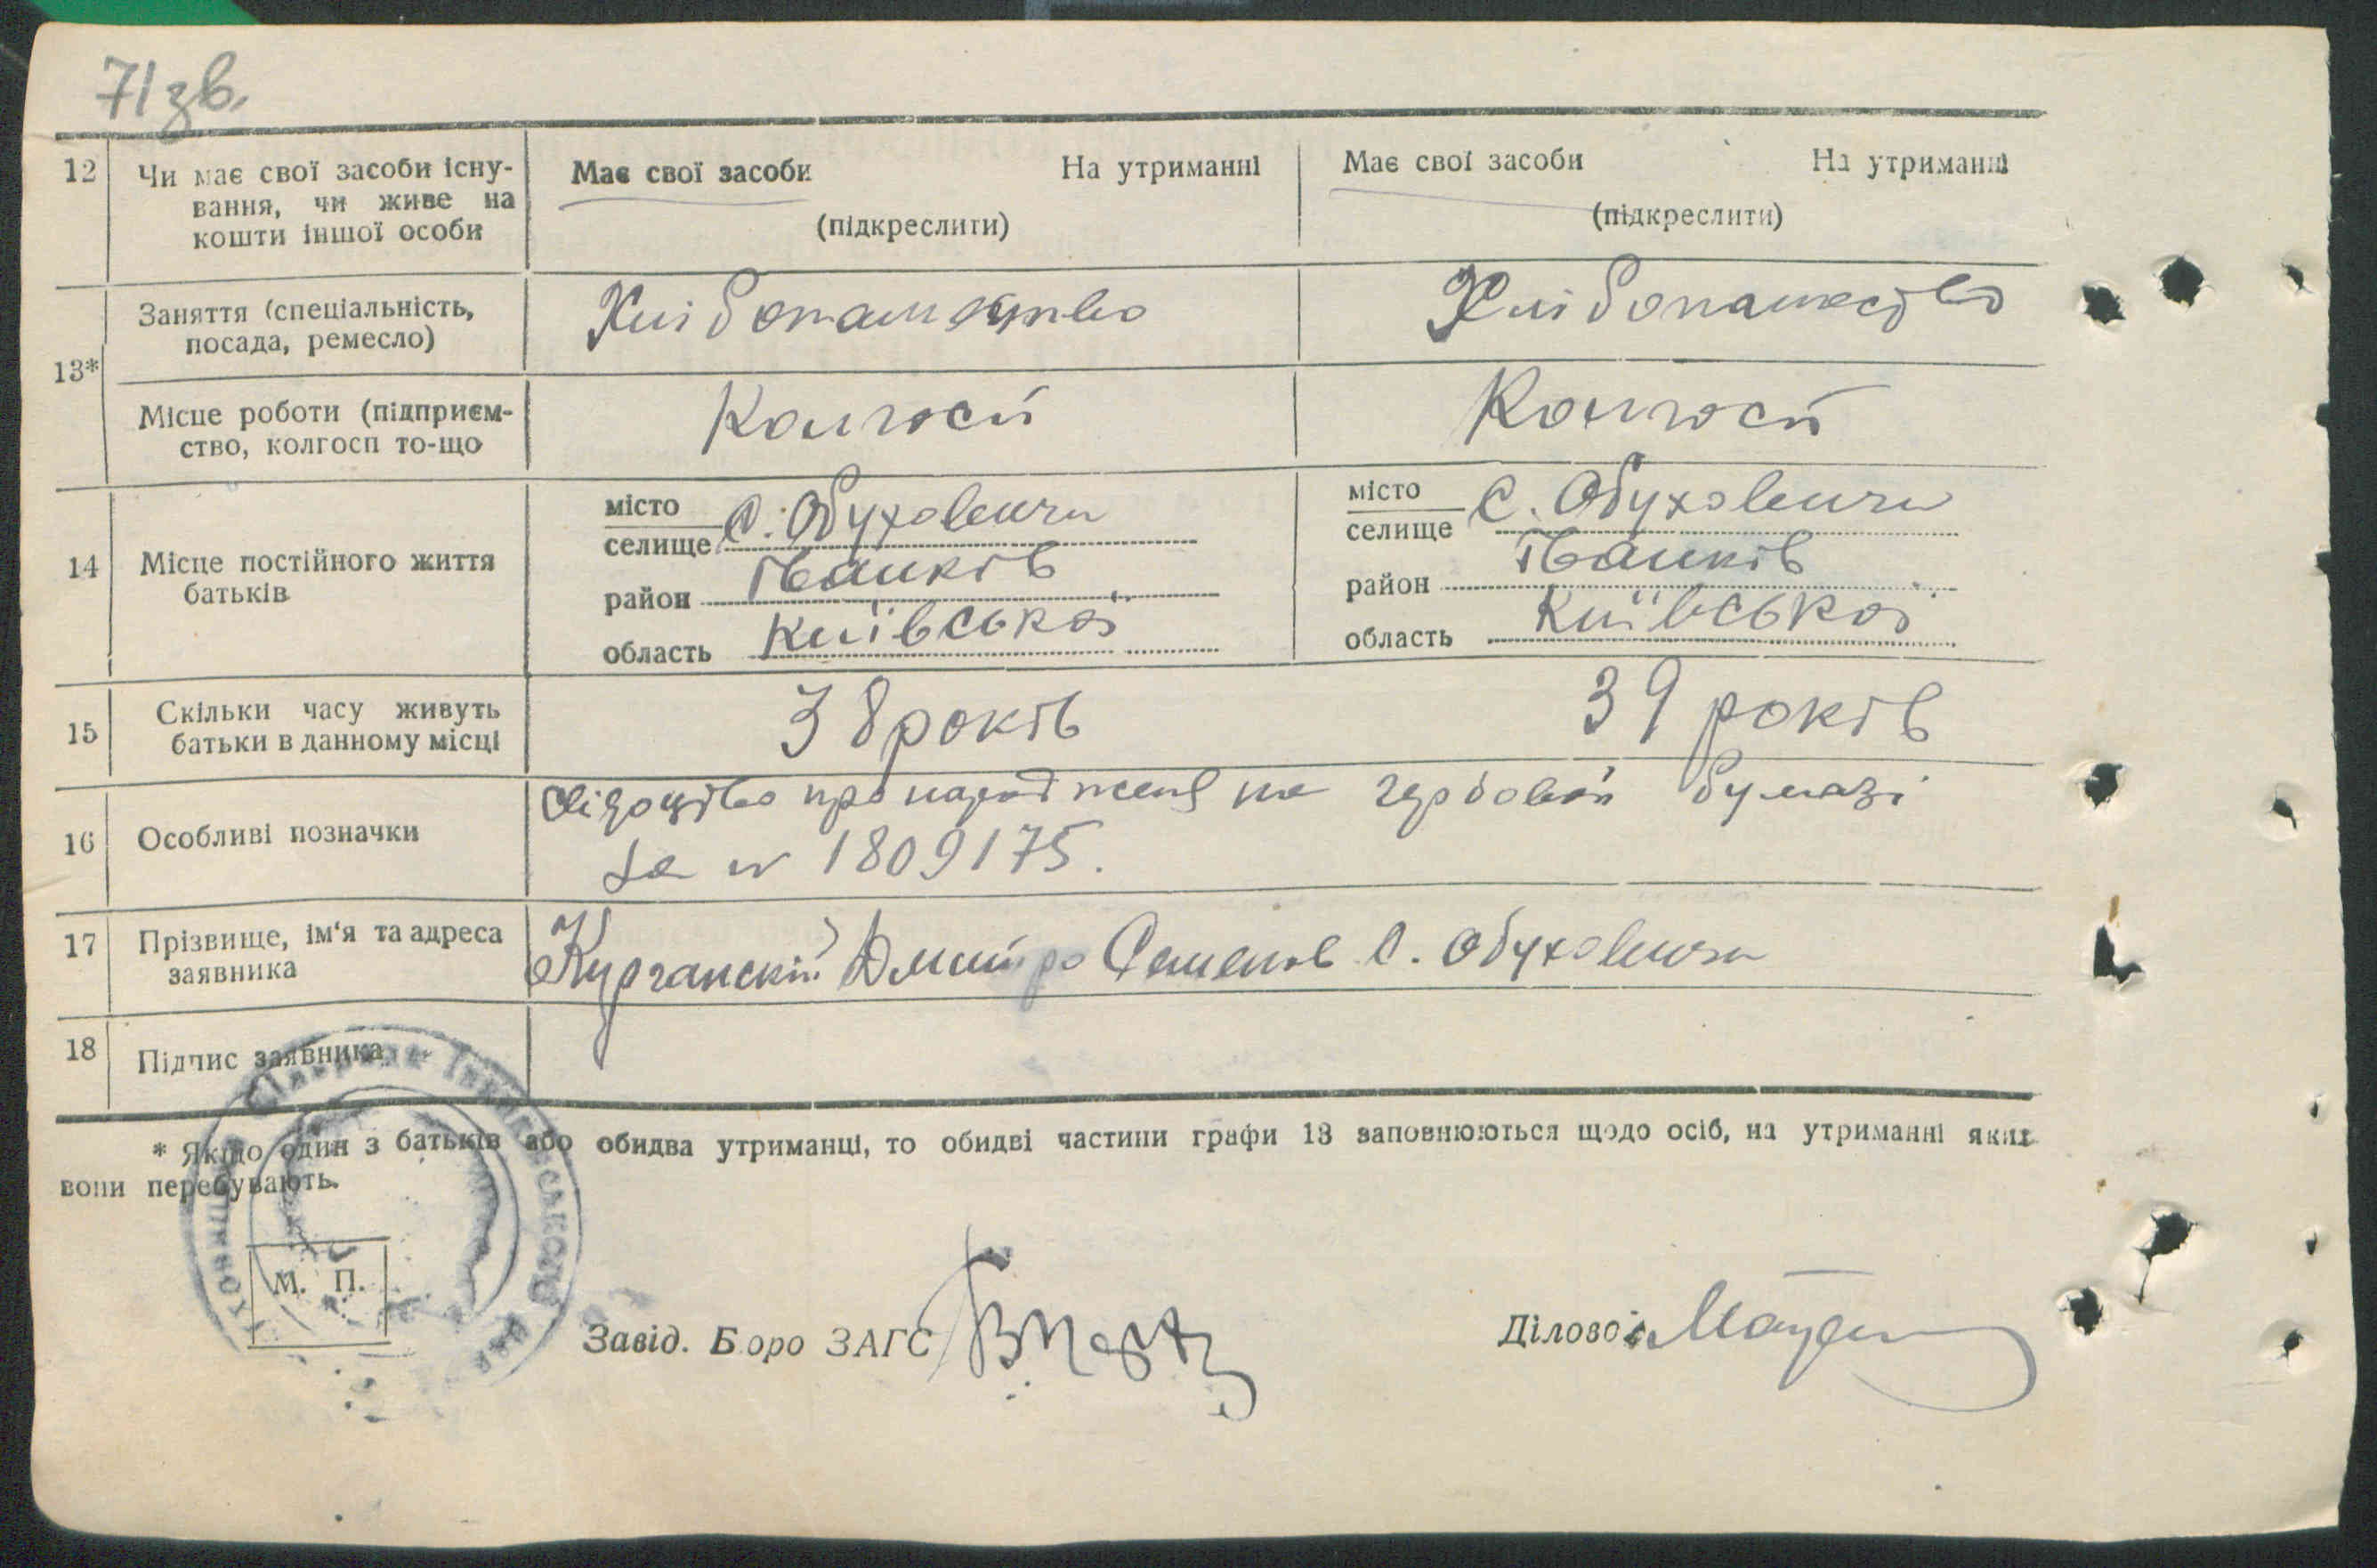 71 зв.
12 Чи має свої засоби існу-
вання, чи живе на
кошти іншої особи
Має свої засоби На утриманні
(підкреслити)
Має свої засоби На утриманні
(підкреслити)
13*
Заняття (спеціальність,
посада, ремесло)
Хлібопашество Хлібопашество
Місце роботи (підприєм-
ство, колгосп то-що
Колгосп Колгосп
14 Місце постійного життя
батьків
місто
селище с. Обуховичи
район Іванків
область Київської
місто
селище с. Обуховичи
район Іванків
область Київської
15 Скільки часу живуть
батьки в данному місці
38 років 39 років
16 Особливі позначки
свідоцтво про народженя на гербовой бумазі
за № 1809175.
17 Прізвище, ім'я та адреса
заявника
Курганскій Дмитро Семенов с. Обуховичи
18 Підпис заявника
* Якщо один з батьків або обидва утриманці, то обидві частини графи 13 заповнюються щодо осіб, на утриманні яких
вони перебувають.
М. П.
Завід. Бюро ЗАГС
Діловод